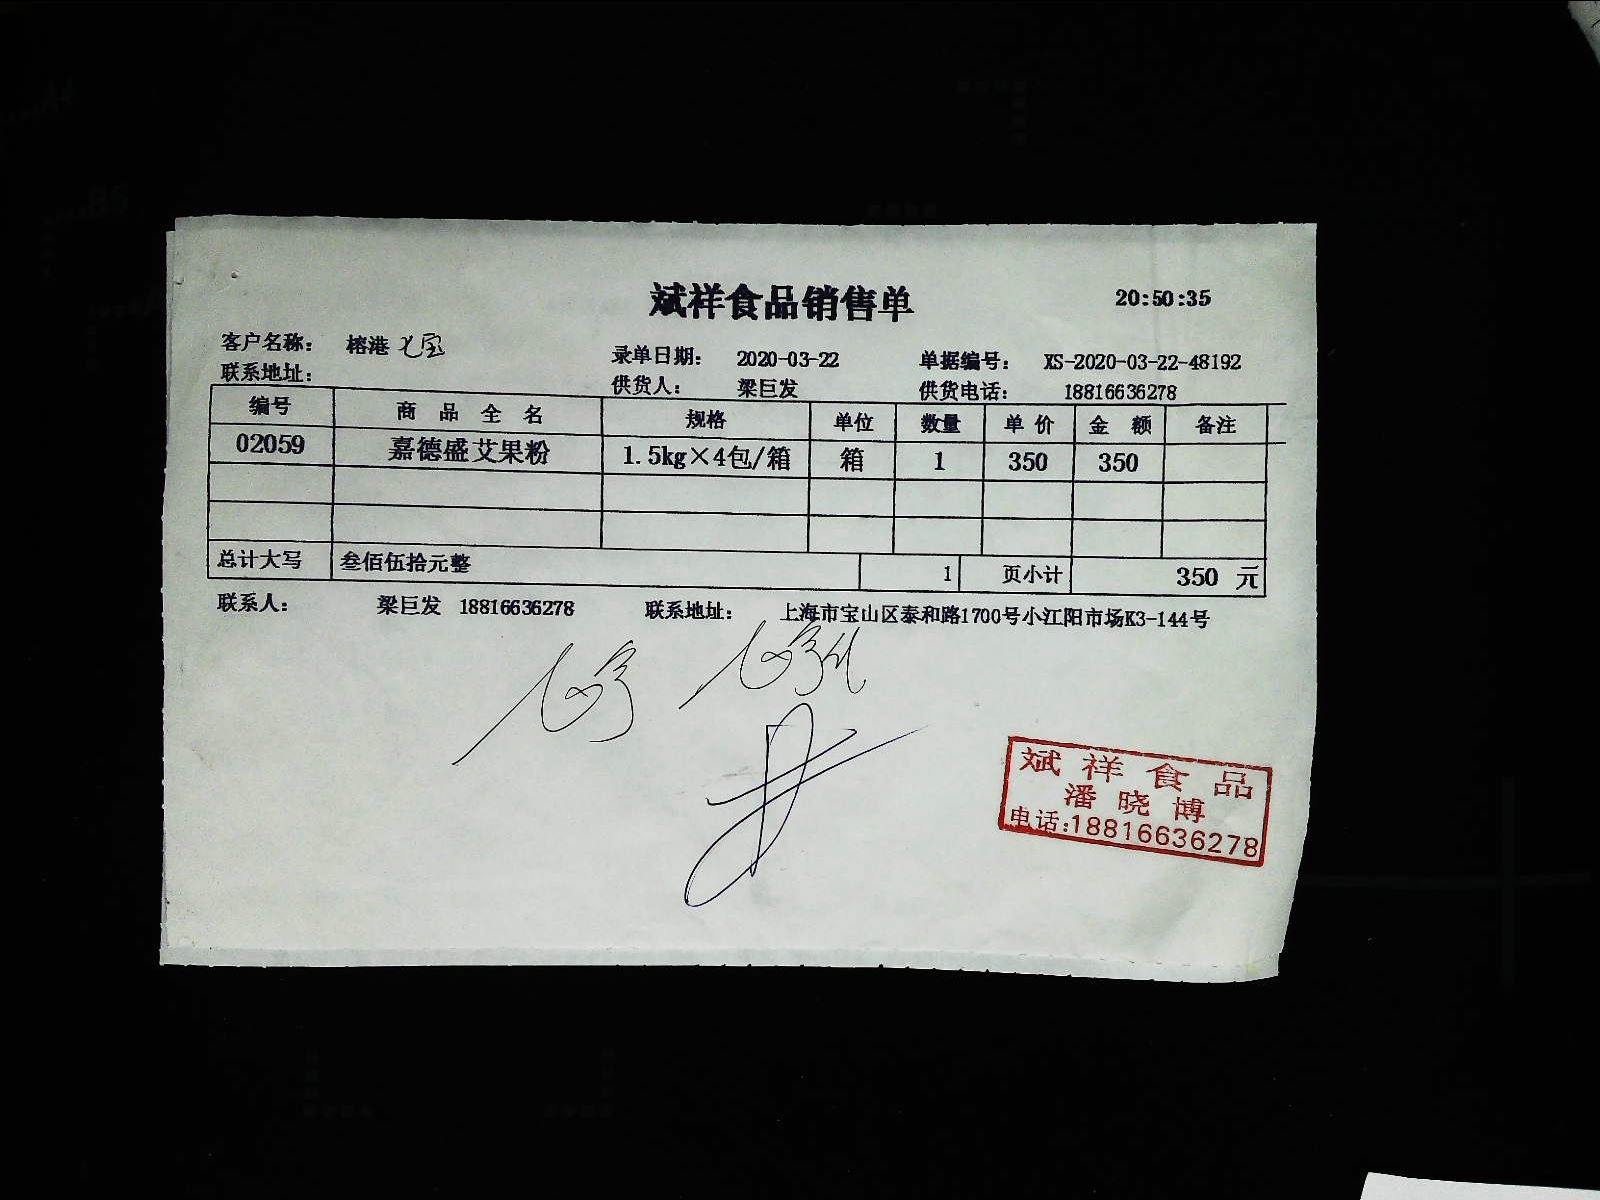 斌祥食品销售单 20:50:35
客户名称： 榕港 七宝 录单日期： 2020-03-22 单据编号： XS-2020-03-22-48192
联系地址： 供货人： 梁巨发 供货电话： 18816636278
编号 商品全名 规格 单位 数量 单价 金额 备注
02059 嘉德盛艾果粉 1.5kg×4包/箱 箱 1 350 350
总计大写 叁佰伍拾元整 1 页小计 350 元
联系人： 梁巨发 18816636278 联系地址： 上海市宝山区泰和路1700号小江阳市场K3-144号
斌祥食品
潘晓博
电话:18816636278